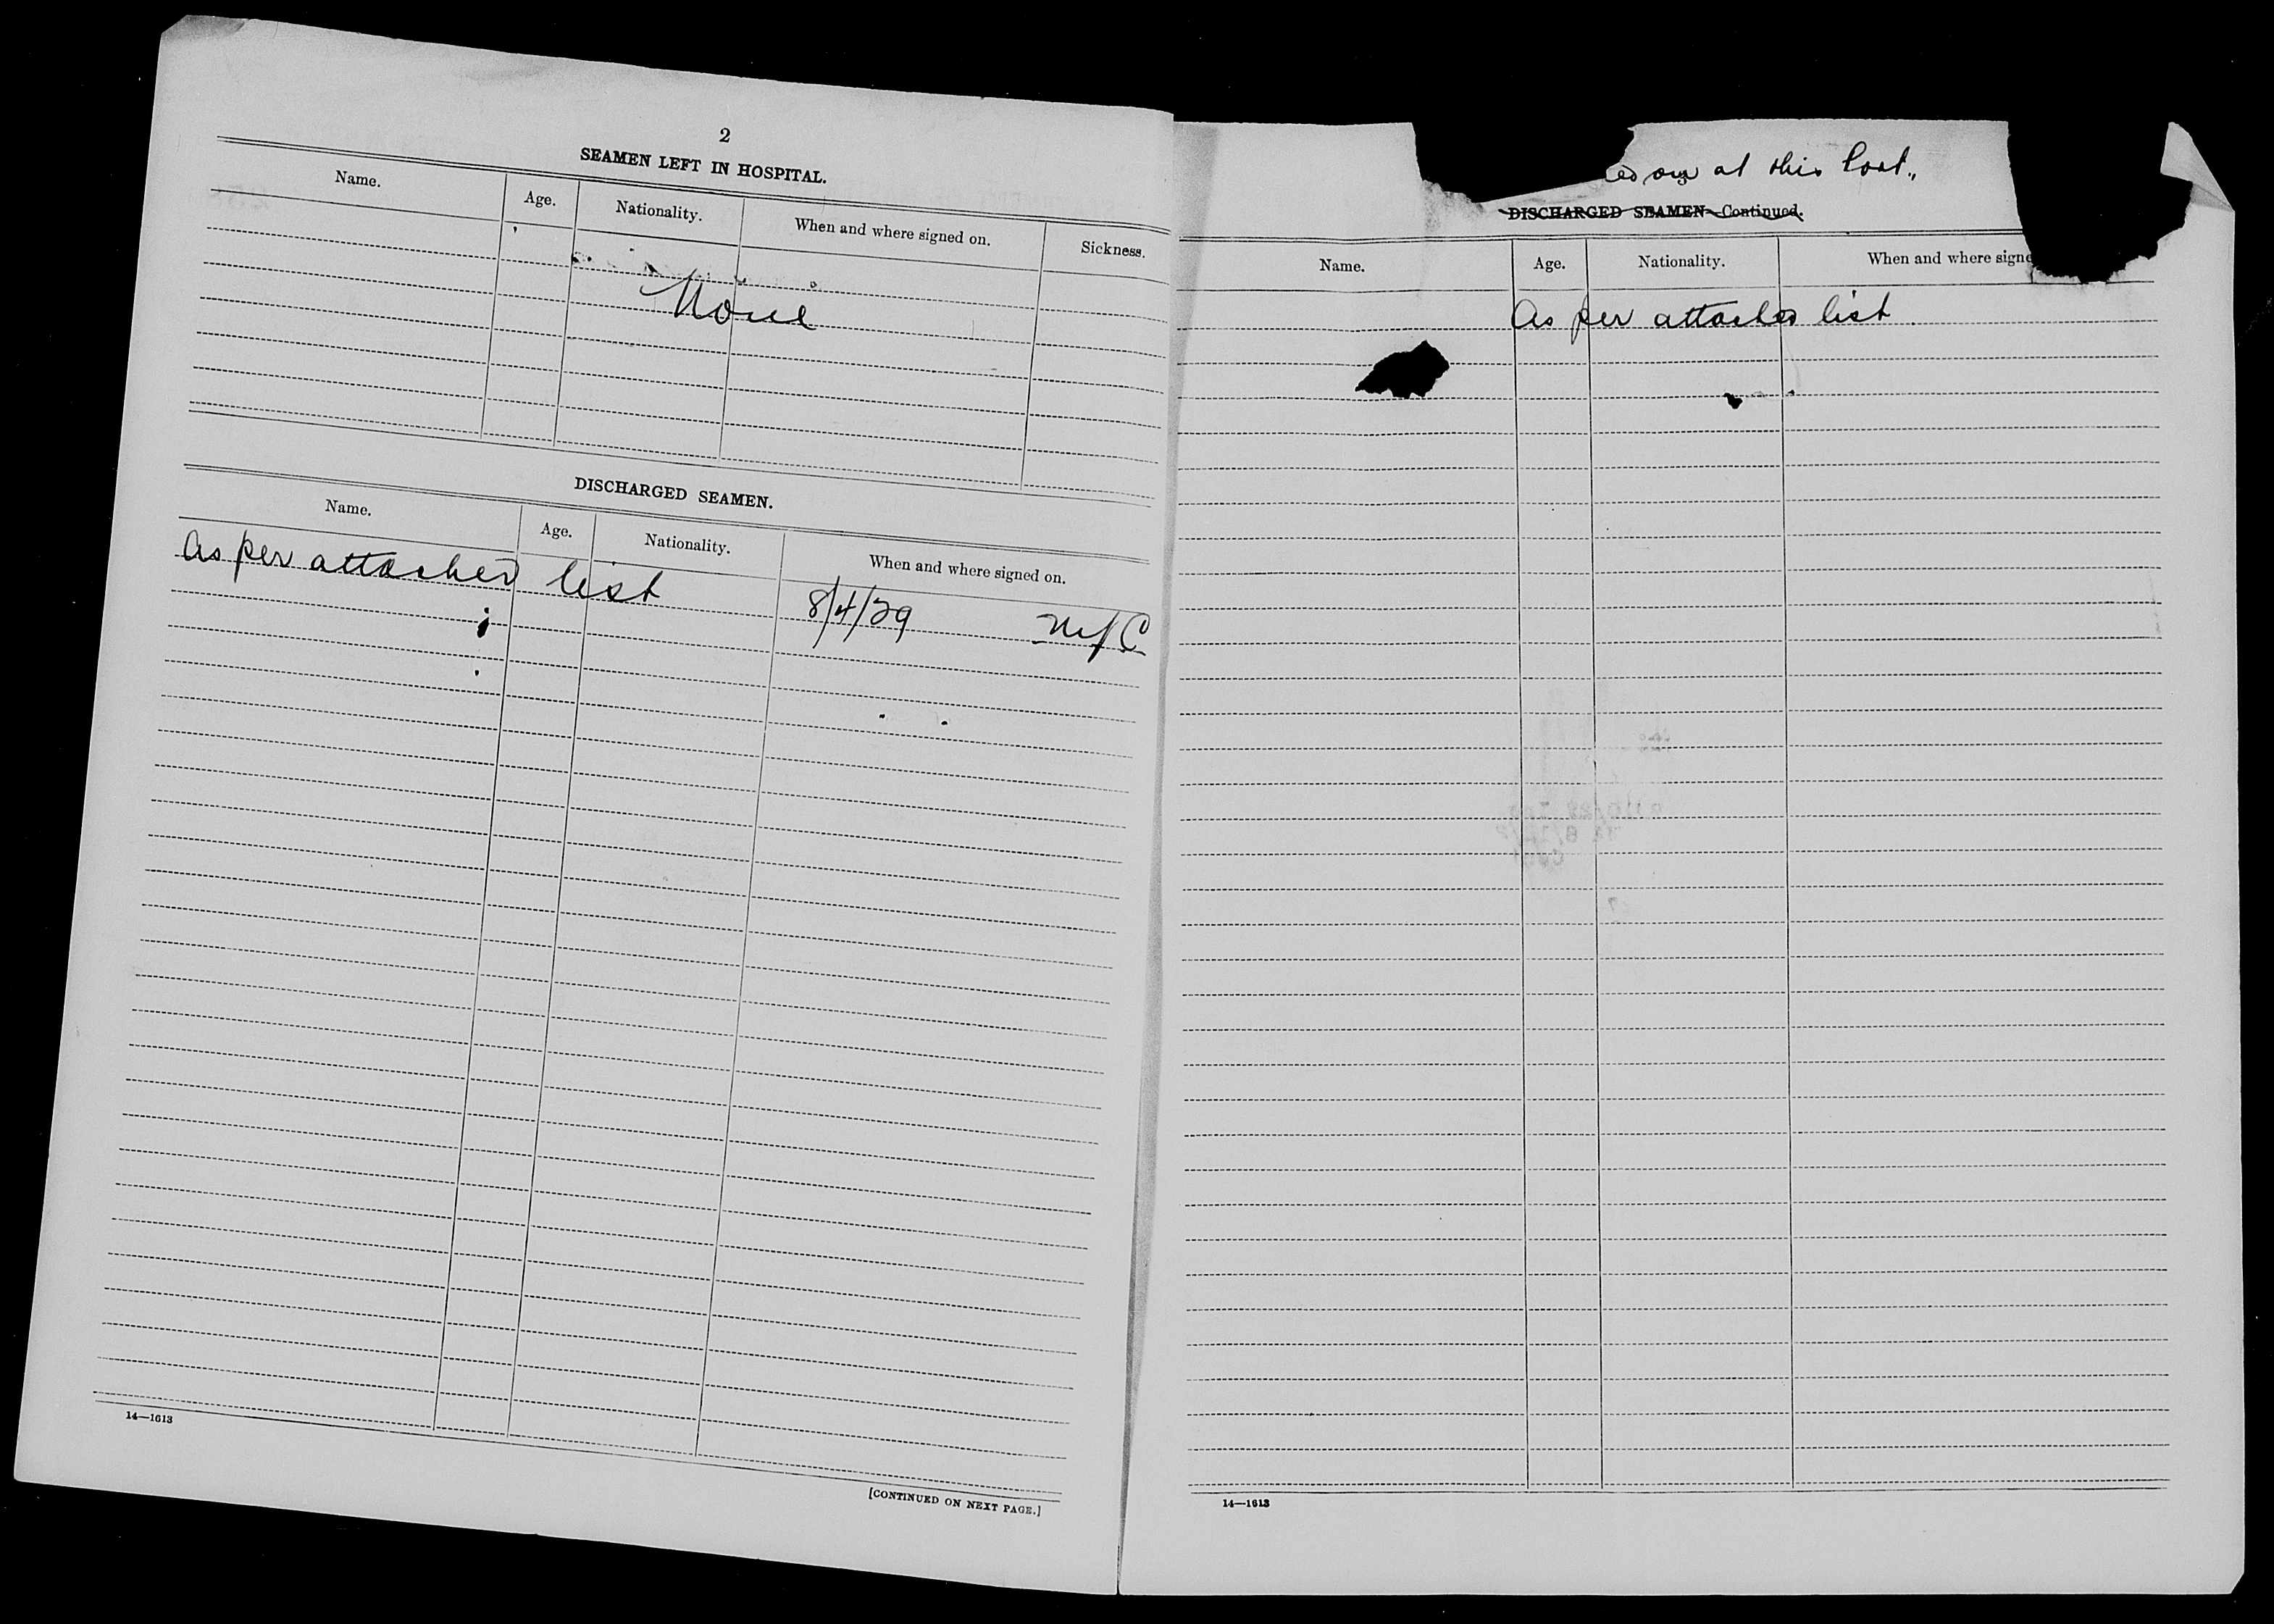 2
SEAMEN LEFT IN HOSPITAL.
Name. Age. Nationality. When and where signed on. Sickness.
None
DISCHARGED SEAMEN.
Name. Age. Nationality. When and where signed on.
As per attached list 8/4/29
14—1613
[CONTINUED ON NEXT PAGE.]
at this Port.,
DISCHARGED SEAMEN—Continued.
Name. Age. Nationality. When and where signe
As per attached list
14—1613